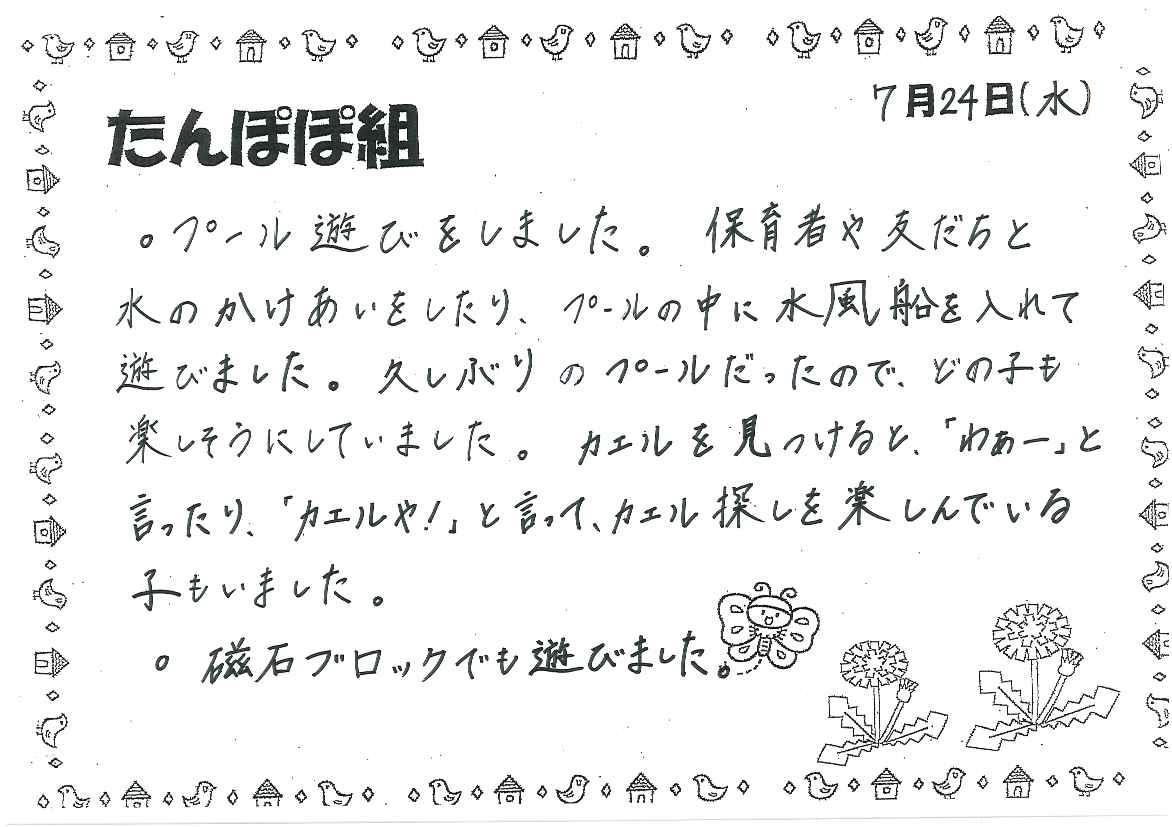 7月24日(水)
たんぽぽ組
。プール遊びをしました。 保育者や友だちと
水のかけあいをしたり、プールの中に水風船を入れて
遊びました。久しぶりのプールだったので、どの子も
楽しそうにしていました。カエルを見つけると、「わぁー」と
言ったり、「カエルや!」と言って、カエル探しを楽しんでいる
子もいました。
。磁石ブロックでも遊びました。